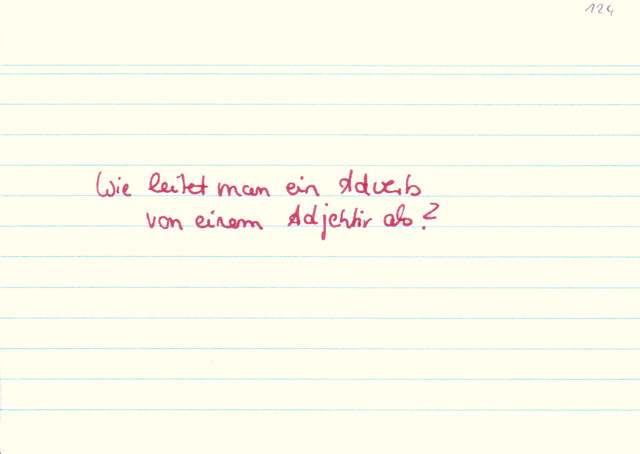 124
Wie leitet man ein Adverb
von einem Adjektiv ab?